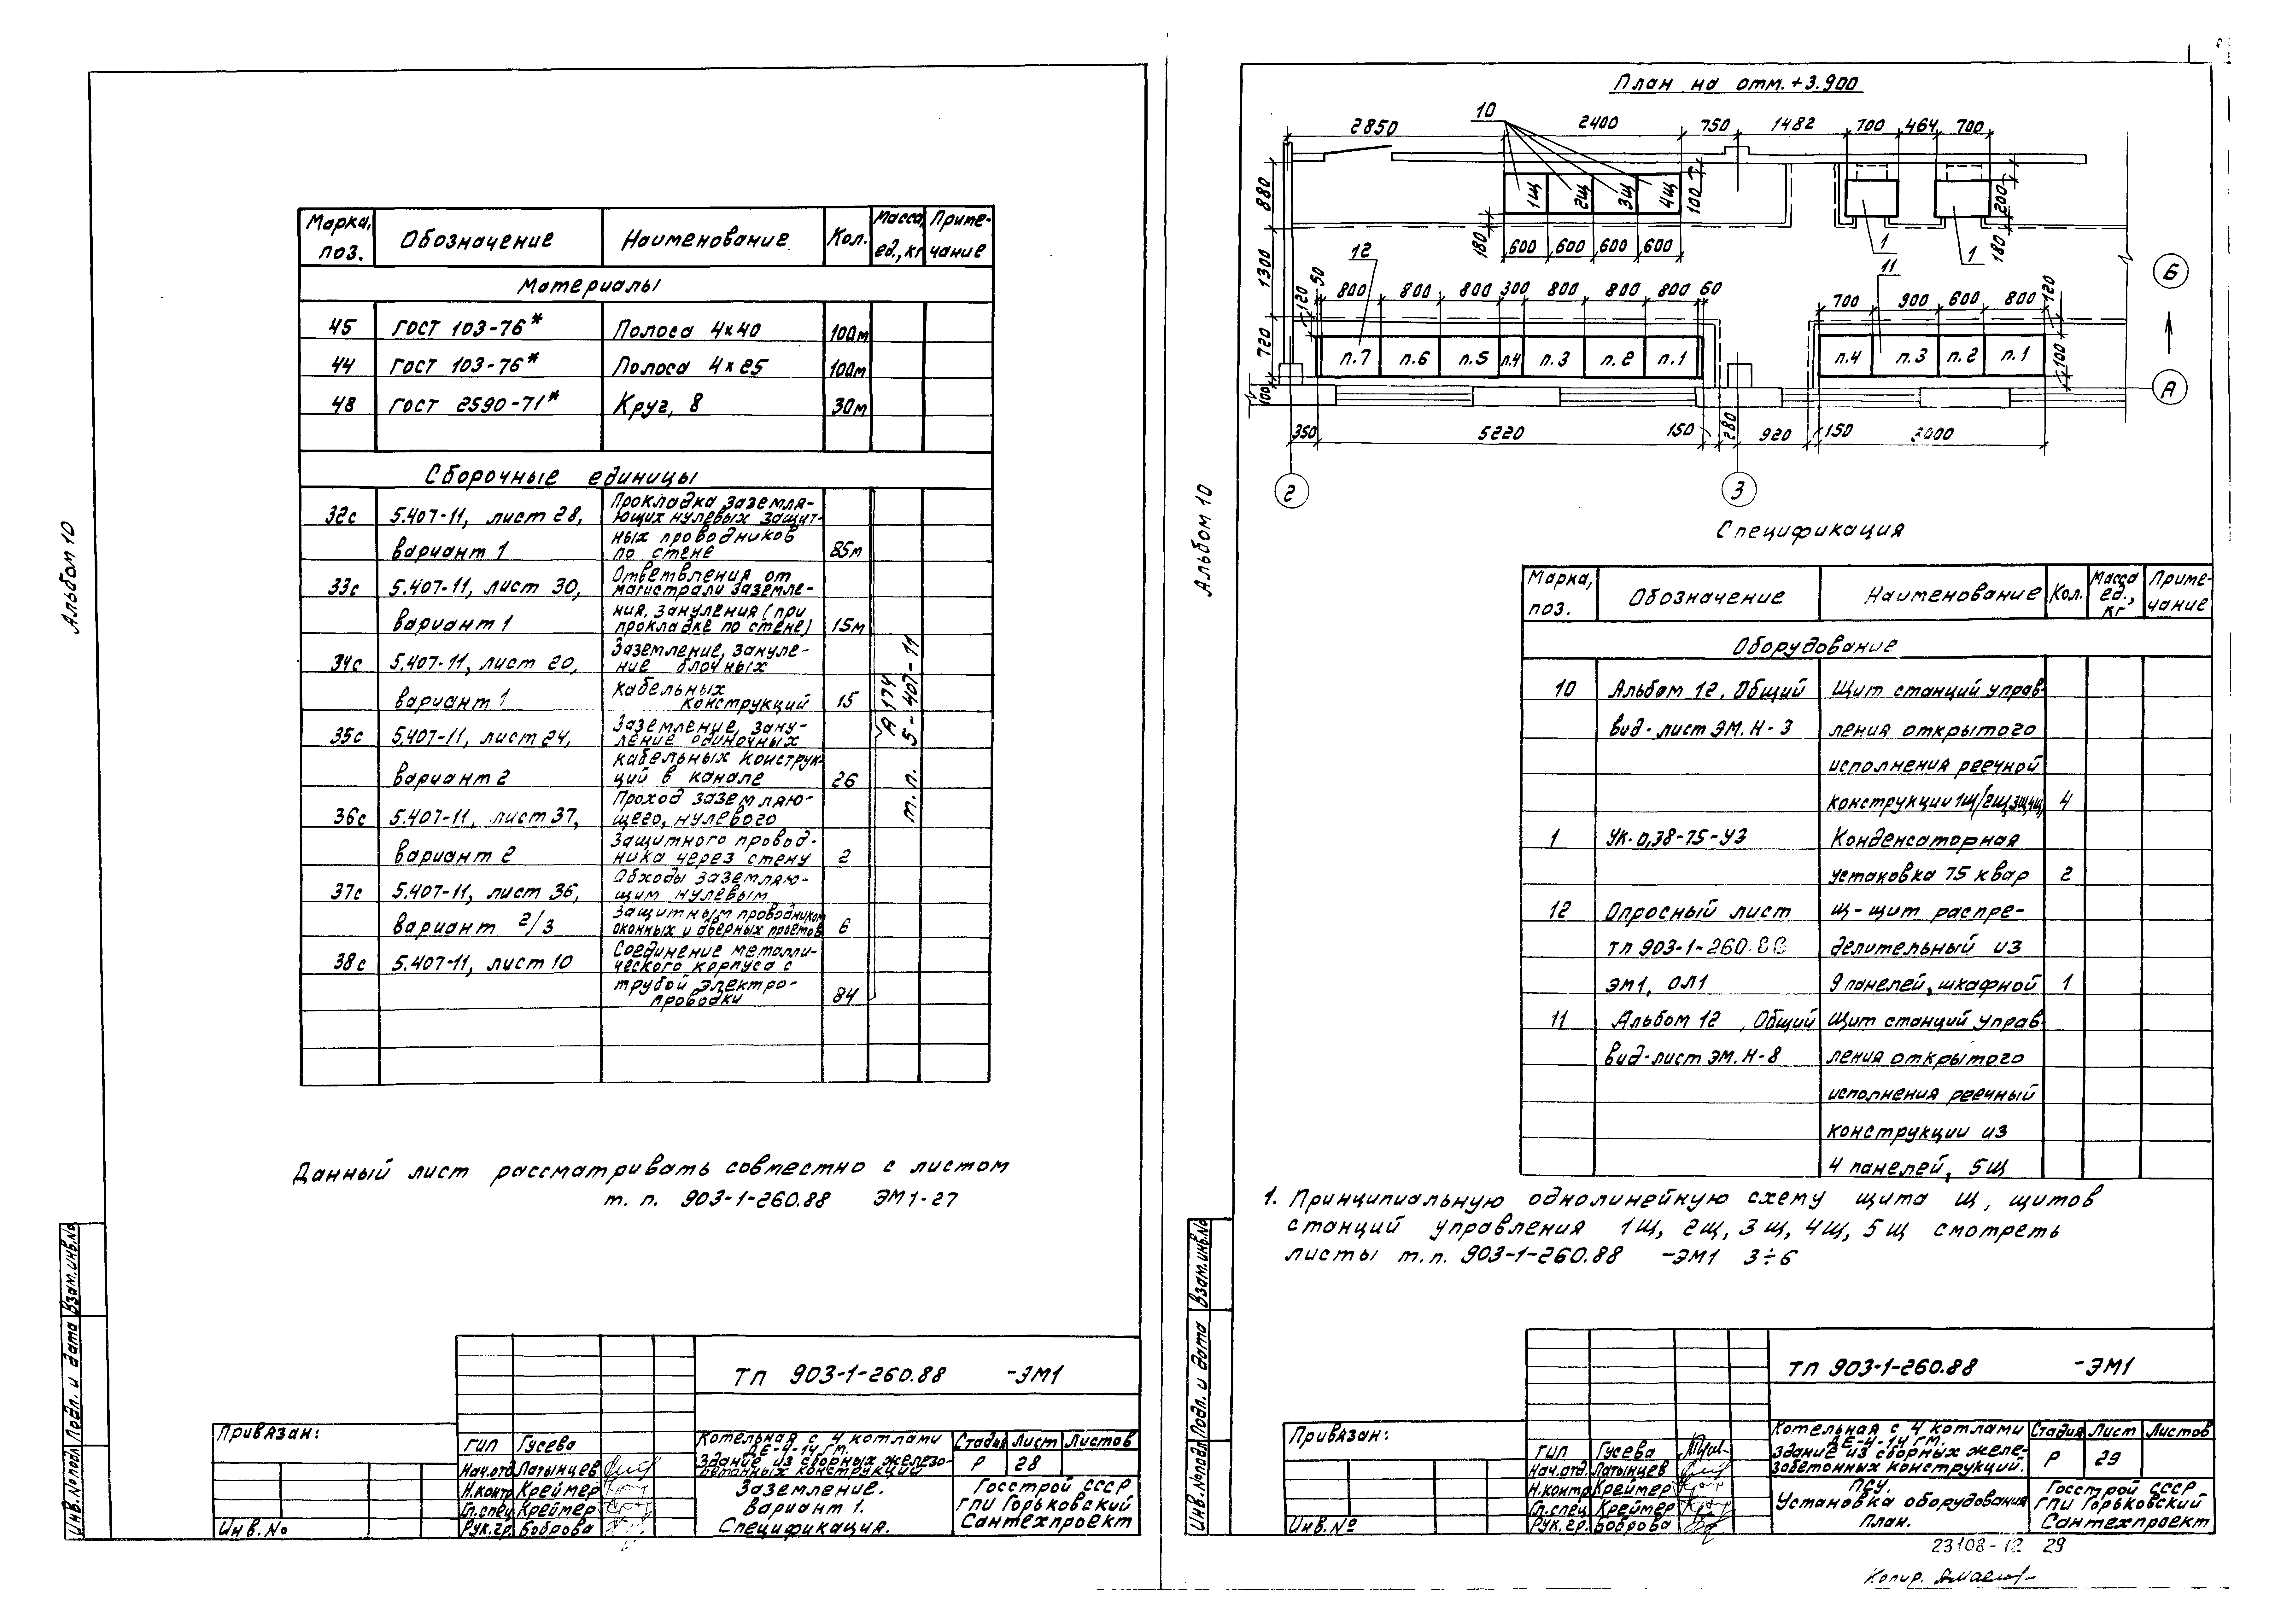 Альбом 10
Марка, поз.
Обозначение
Наименование
Кол.
Масса ед., кг
Приме-чание
Материалы
45 ГОСТ 103-76* Полоса 4х40 100м
44 ГОСТ 103-76* Полоса 4х25 100м
48 ГОСТ 2590-71* Круг, 8 30м
Сборочные единицы
32с 5.407-11, лист 28, Прокладка заземля-
ющих нулевых защит-
вариант 1 ных проводников
по стене 85м
33с 5.407-11, лист 30, Ответвления от
магистрали заземле-
вариант 1 ния, зануления (при
прокладке по стене) 15м
34с 5.407-11, лист 20, Заземление, зануле-
ние блочных
вариант 1 кабельных
конструкций 15
35с 5.407-11, лист 24, Заземление, зану-
ление одиночных
вариант 2 кабельных конструк-
ций в канале 26
36с 5.407-11, лист 37, Проход заземляю-
щего, нулевого
вариант 2 Защитного провод-
ника через стену 2
37с 5.407-11, лист 36, Обходы заземляю-
щим нулевым
вариант 2/3 защитным проводником
оконных и дверных проемов 6
38с 5.407-11, лист 10 Соединение металли-
ческого корпуса с
трубой электро-
проводки 84
А174
т. п. 5-407-11
Данный лист рассматривать совместно с листом
т. п. 903-1-260.88 ЭМ1-27
Взам.инв.№
Подп. и дата
Инв.№подл
Привязан:
Инв.№
ТП 903-1-260.88 -ЭМ1
ГИП Гусева
Нач.отд Латынцев
Н.контр Креймер
Гл.спец Креймер
Рук.гр. Боброва
Котельная с 4 котлами
ДЕ-4-14 ГМ.
Здание из сборных железо-
бетонных конструкций
Стадия Лист Листов
Р 28
Заземление.
Вариант 1.
Спецификация.
Госстрой СССР
ГПИ Горьковский
Сантехпроект
Альбом 10
План на отм. +3.900
2850 10 2400 750 1482 700 464 700
880 1Щ 2Щ 3Щ 4Щ 100 200
180 600 600 600 600 1 1 180
1300 12 11 Б
120 50 800 800 800 300 800 800 800 60 700 900 600 800 120
720 п.7 п.6 п.5 п.4 п.3 п.2 п.1 п.4 п.3 п.2 п.1 100
100 А
350 5220 150 280 920 150 3000
2 3
Спецификация
Марка, поз.
Обозначение
Наименование
Кол.
Масса ед., кг
Приме-чание
Оборудование
10 Альбом 12. Общий Щит станций управ-
вид-лист ЭМ.Н-3 ления открытого
исполнения реечной
конструкции 1Щ/2Щ,3Щ,4Щ 4
1 УК-0,38-75-У3 Конденсаторная
установка 75 квар 2
12 Опросный лист Щ-щит распре-
тп 903-1-260.88 делительный из
ЭМ1, ОЛ1 9 панелей, шкафной 1
11 Альбом 12, Общий Щит станций управ-
вид-лист ЭМ.Н-8 ления открытого
исполнения реечный
конструкции из
4 панелей, 5Щ
1. Принципиальную однолинейную схему щита Щ, щитов
станций управления 1Щ, 2Щ, 3Щ, 4Щ, 5Щ смотреть
листы т.п. 903-1-260.88 -ЭМ1 3÷6
Взам.инв.№
Подп. и дата
Инв.№подл
Привязан:
Инв.№
ТП 903-1-260.88 -ЭМ1
ГИП Гусева
Нач.отд. Латынцев
Н.контр Креймер
Гл.спец Креймер
Рук.гр. Боброва
Котельная с 4 котлами
ДЕ-4-14 ГМ.
Здание из сборных желе-
зобетонных конструкций.
Стадия Лист Листов
Р 29
ПСУ.
Установка оборудования
План.
Госстрой СССР
ГПИ Горьковский
Сантехпроект
23108-12 29
Копир.